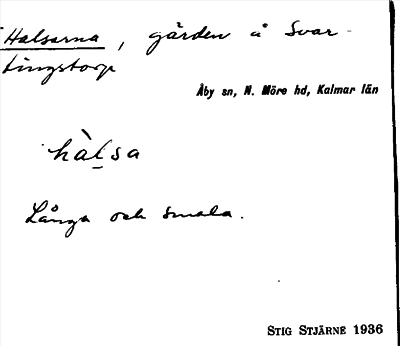 Halsarna, gärden å Svar-
tingstorp
Åby sn, N. Möre hd, Kalmar län
hàl̠sa
Långa och smala.
STIG STJÄRNE 1936